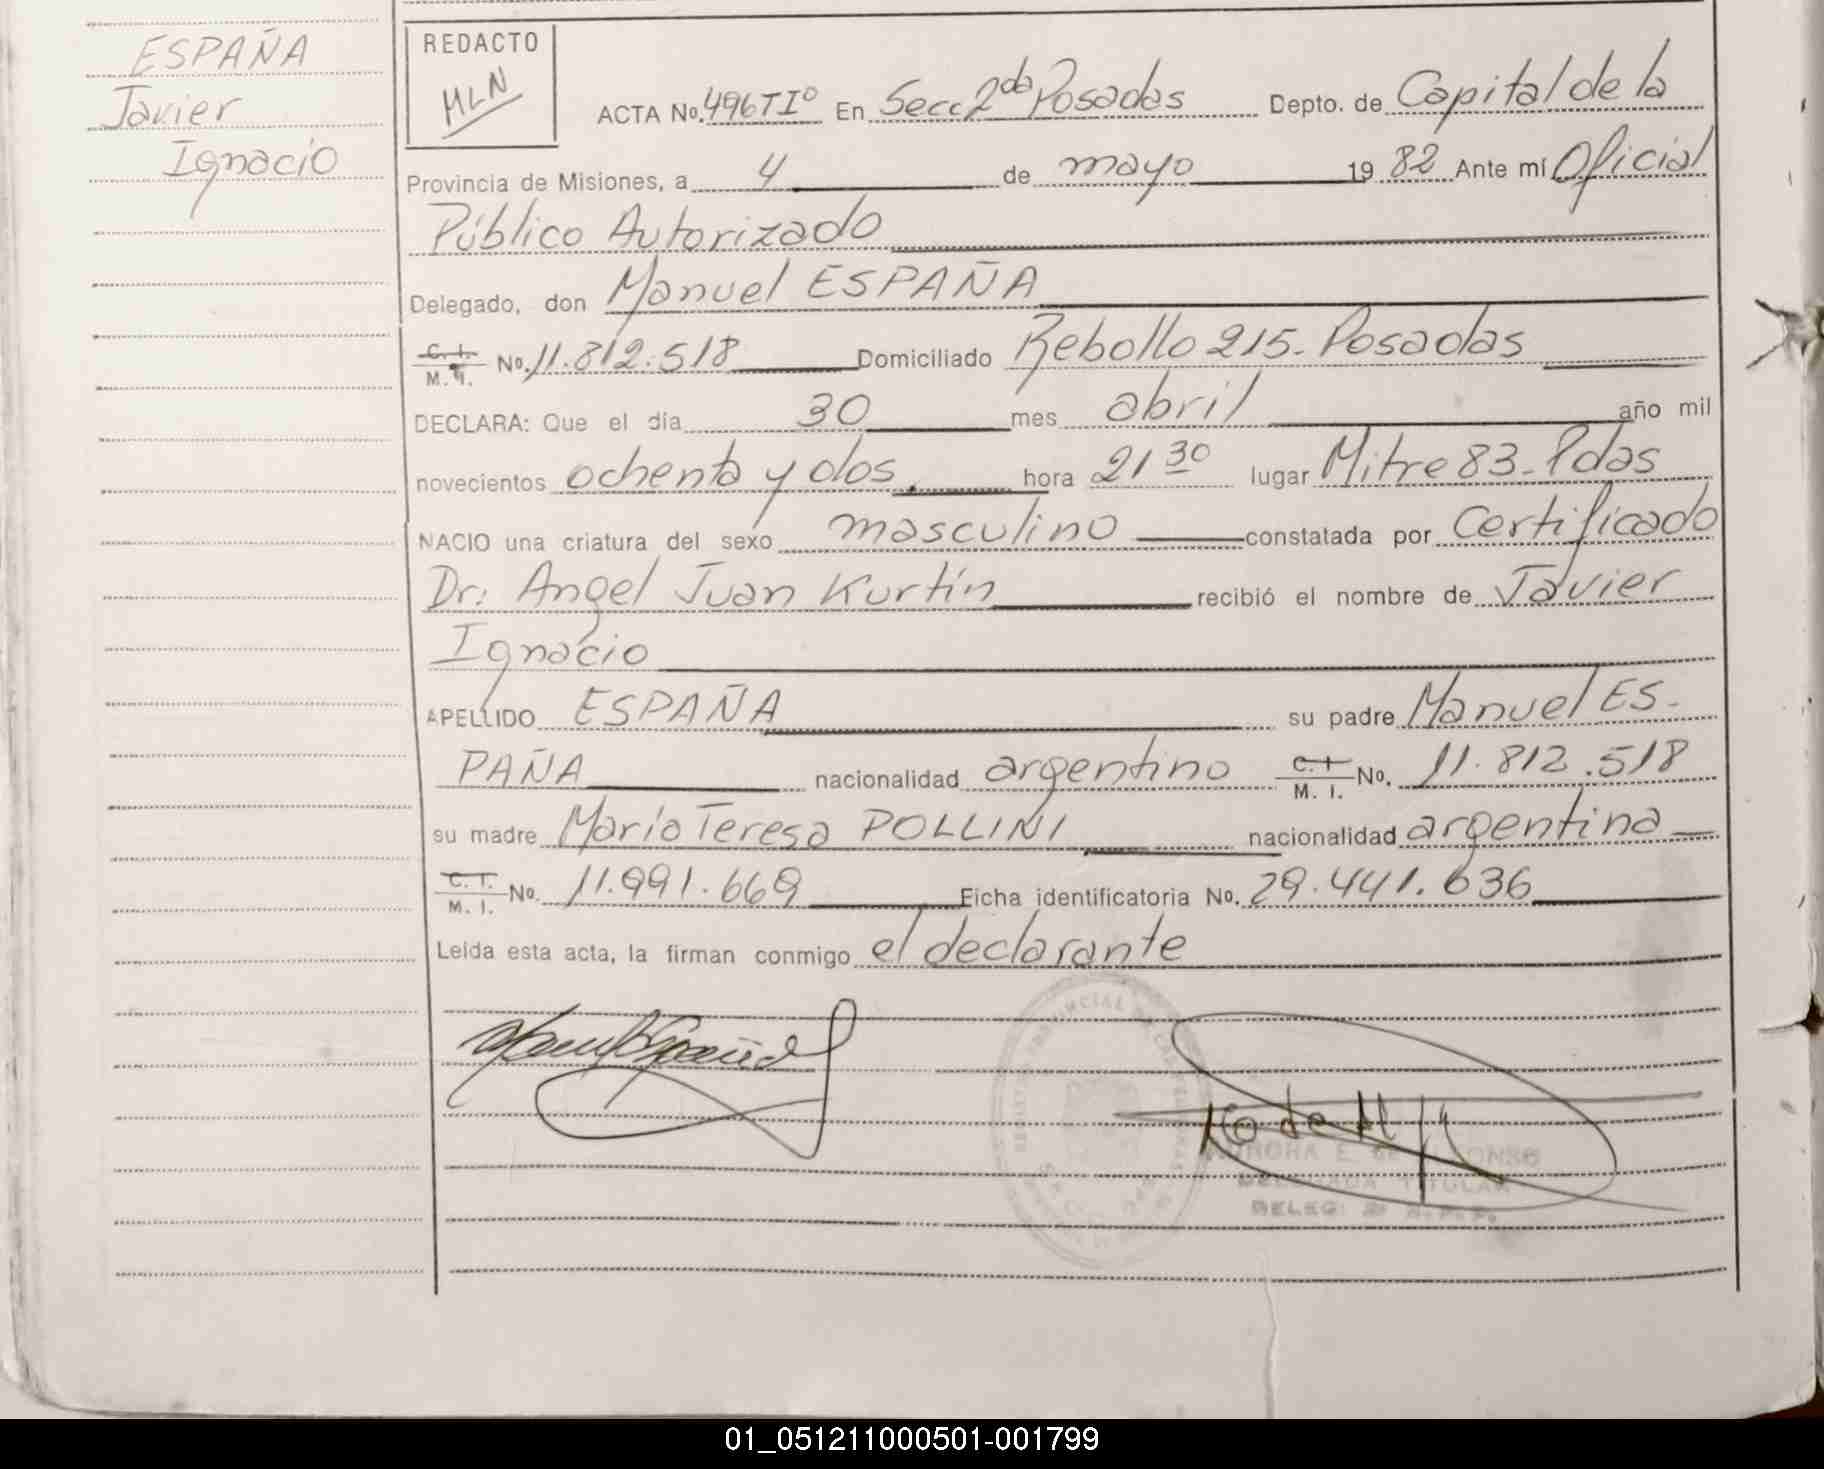 ESPAÑA
Javier
Ignacio
REDACTO
MLN
ACTA No. 496 TIº En Secc 2da Posadas Depto. de Capital de la
Provincia de Misiones, a 4 de mayo 19 82 Ante mi Oficial
Público Autorizado
Delegado, don Manuel ESPAÑA
C. I. M. I. No. 11.812.518 Domiciliado Rebollo 215. Posadas
DECLARA: Que el dia 30 mes abril año mil
novecientos ochenta y dos. hora 21 30 lugar Mitre 83. Pdas
NACIO una criatura del sexo masculino constatada por Certificado
Dr. Angel Juan Kurtín recibió el nombre de Javier
Ignacio
APELLIDO ESPAÑA su padre Manuel ES-
PAÑA nacionalidad argentino C. I. M. I. No. 11.812.518
su madre María Teresa POLLINI nacionalidad argentina
C. I. M. I. No. 11.991.669 Ficha identificatoria No. 29.441.636
Leída esta acta, la firman conmigo el declarante
DELEGADA TITULAR
01_051211000501-001799